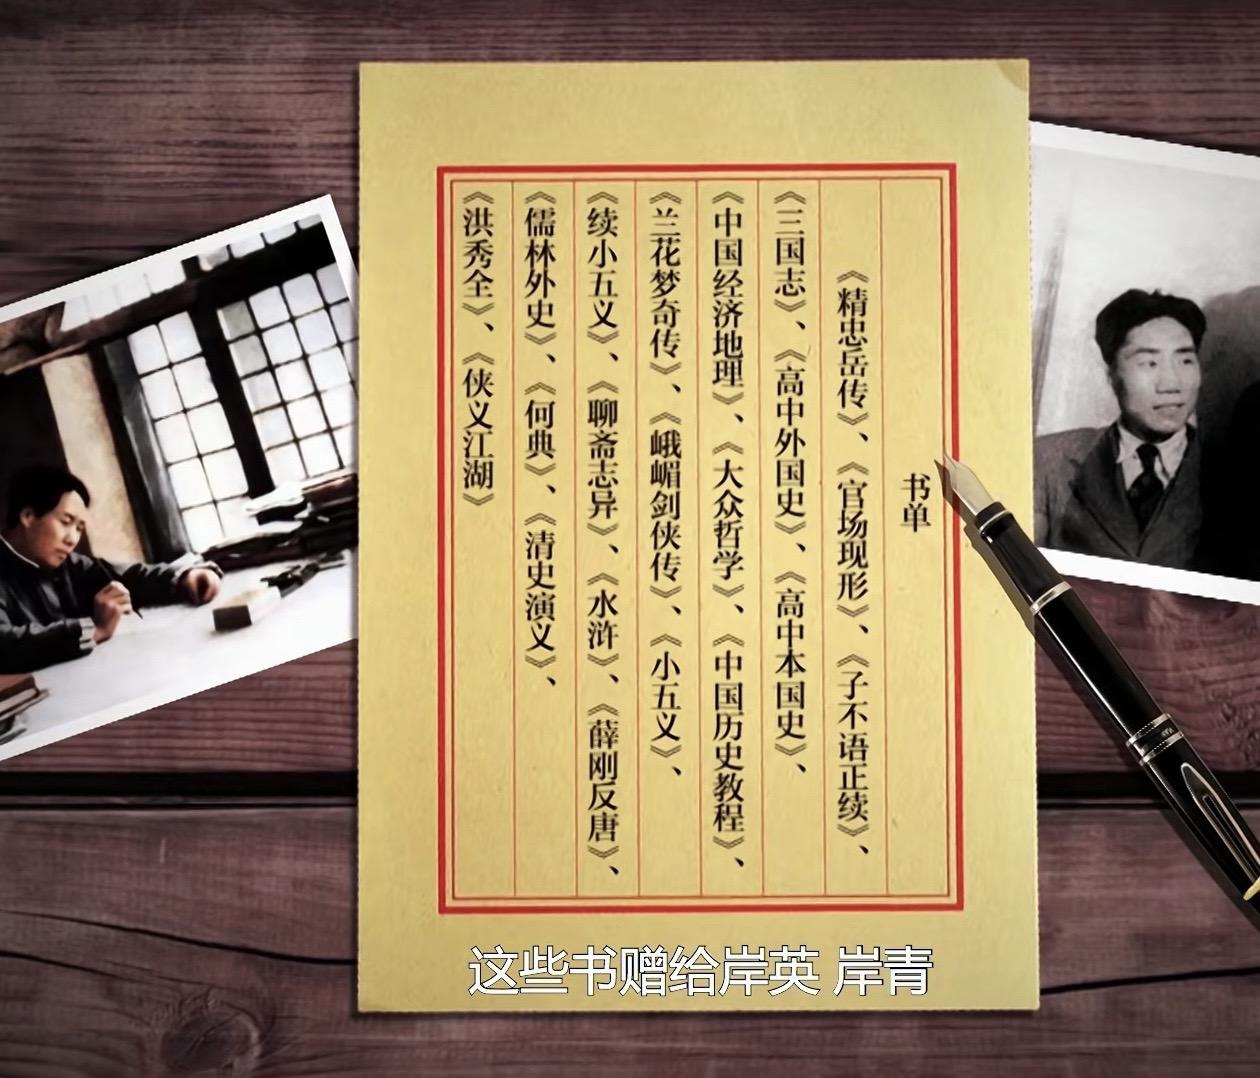 书单
《精忠岳传》、《官场现形》、《子不语正续》、
《三国志》、《高中外国史》、《高中本国史》、
《中国经济地理》、《大众哲学》、《中国历史教程》、
《兰花梦奇传》、《峨嵋剑侠传》、《小五义》、
《续小五义》、《聊斋志异》、《水浒》、《薛刚反唐》、
《儒林外史》、《何典》、《清史演义》、
《洪秀全》、《侠义江湖》
这些书赠给岸英 岸青